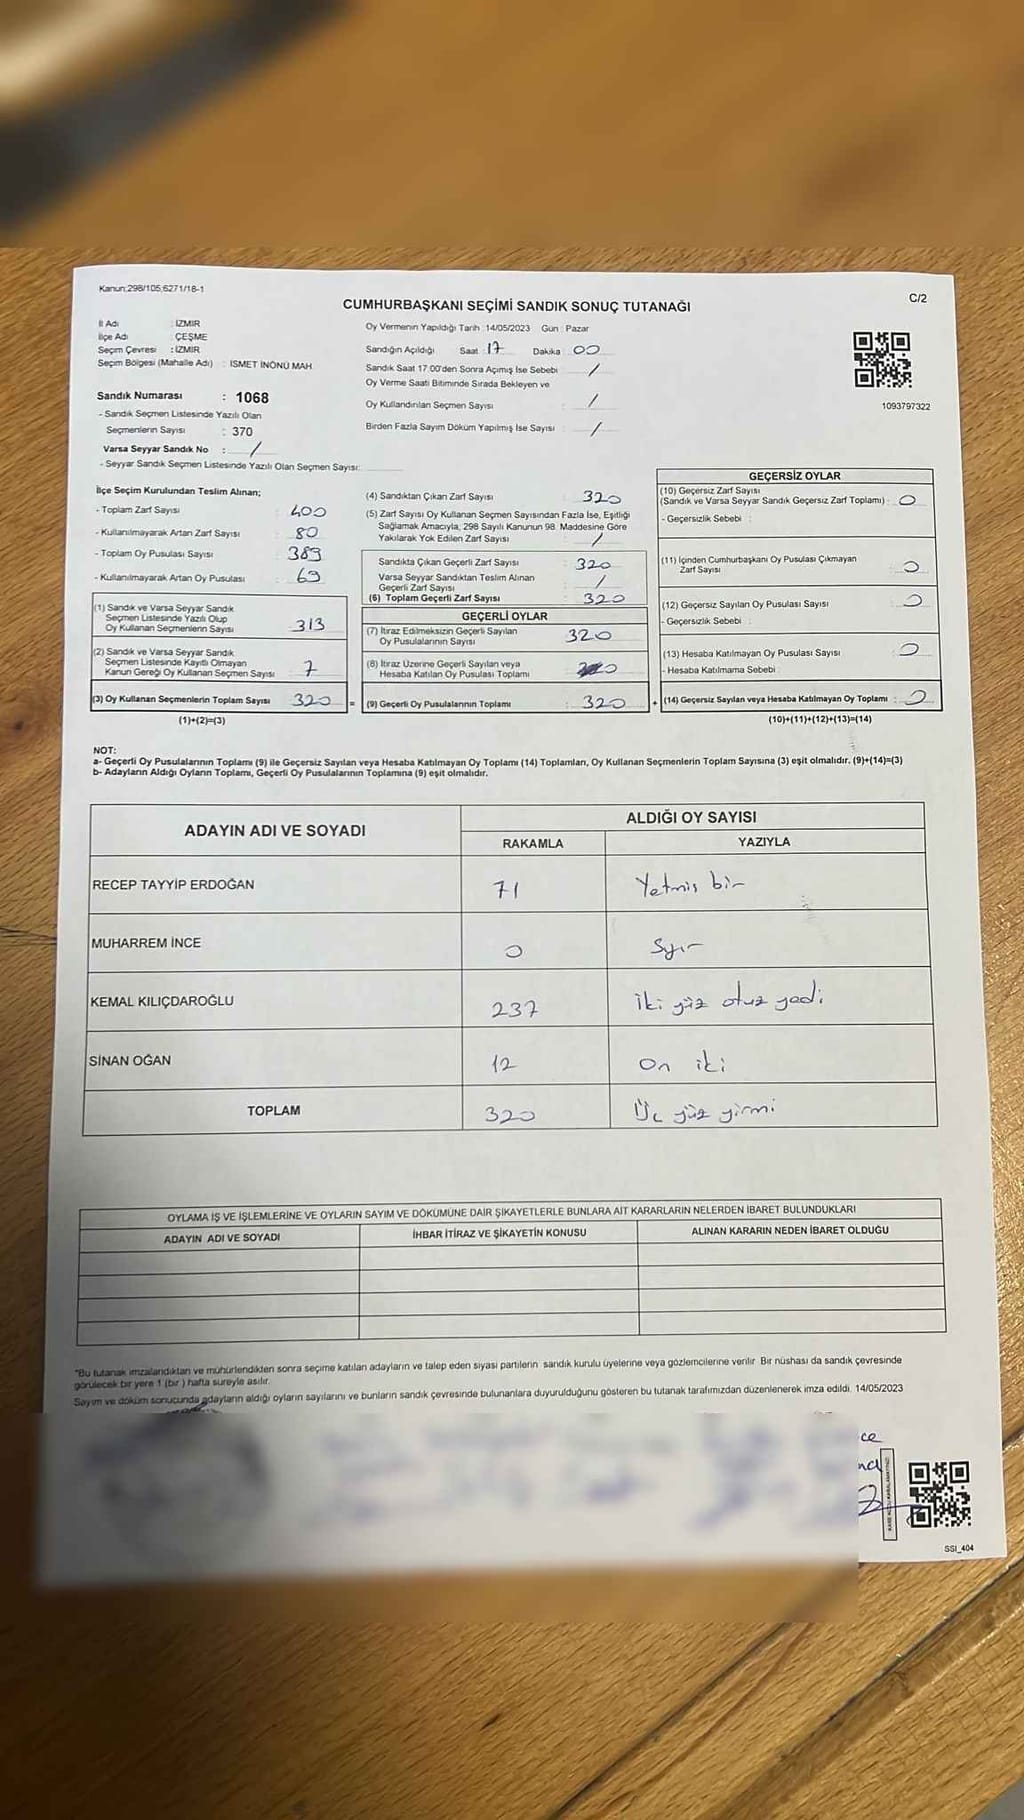 Kanun;298/105,6271/18-1
C/2
CUMHURBAŞKANI SEÇİMİ SANDIK SONUÇ TUTANAĞI
İl Adı : İZMİR
İlçe Adı : ÇEŞME
Seçim Çevresi : İZMİR
Seçim Bölgesi (Mahalle Adı) : İSMET İNÖNÜ MAH
Sandık Numarası : 1068
- Sandık Seçmen Listesinde Yazılı Olan
Seçmenlerin Sayısı : 370
Varsa Seyyar Sandık No : /
- Seyyar Sandık Seçmen Listesinde Yazılı Olan Seçmen Sayısı:
Oy Vermenin Yapıldığı Tarih : 14/05/2023 Gün : Pazar
Sandığın Açıldığı Saat : 17 Dakika : 00
Sandık Saat 17.00'den Sonra Açımış İse Sebebi : /
Oy Verme Saati Bitiminde Sırada Bekleyen ve
Oy Kullandırılan Seçmen Sayısı : /
Birden Fazla Sayım Döküm Yapılmış İse Sayısı : /
1093797322
İlçe Seçim Kurulundan Teslim Alınan;
- Toplam Zarf Sayısı : 400
- Kullanılmayarak Artan Zarf Sayısı : 80
- Toplam Oy Pusulası Sayısı : 389
- Kullanılmayarak Artan Oy Pusulası : 69
(1) Sandık ve Varsa Seyyar Sandık
Seçmen Listesinde Yazılı Olup
Oy Kullanan Seçmenlerin Sayısı : 313
(2) Sandık ve Varsa Seyyar Sandık
Seçmen Listesinde Kayıtlı Olmayan
Kanun Gereği Oy Kullanan Seçmen Sayısı : 7
(3) Oy Kullanan Seçmenlerin Toplam Sayısı : 320 =
(1)+(2)=(3)
(4) Sandıktan Çıkan Zarf Sayısı : 320
(5) Zarf Sayısı Oy Kullanan Seçmen Sayısından Fazla İse, Eşitliği
Sağlamak Amacıyla, 298 Sayılı Kanunun 98. Maddesine Göre
Yakılarak Yok Edilen Zarf Sayısı : /
Sandıkta Çıkan Geçerli Zarf Sayısı : 320
Varsa Seyyar Sandıktan Teslim Alınan
Geçerli Zarf Sayısı : /
(6) Toplam Geçerli Zarf Sayısı : 320
GEÇERLİ OYLAR
(7) İtiraz Edilmeksizin Geçerli Sayılan
Oy Pusulalarının Sayısı : 320
(8) İtiraz Üzerine Geçerli Sayılan veya
Hesaba Katılan Oy Pusulası Toplamı : 0
(9) Geçerli Oy Pusulalarının Toplamı : 320 +
GEÇERSİZ OYLAR
(10) Geçersiz Zarf Sayısı
(Sandık ve Varsa Seyyar Sandık Geçersiz Zarf Toplamı) : 0
- Geçersizlik Sebebi :
(11) İçinden Cumhurbaşkanı Oy Pusulası Çıkmayan
Zarf Sayısı : 0
(12) Geçersiz Sayılan Oy Pusulası Sayısı : 0
- Geçersizlik Sebebi :
(13) Hesaba Katılmayan Oy Pusulası Sayısı : 0
- Hesaba Katılmama Sebebi :
(14) Geçersiz Sayılan veya Hesaba Katılmayan Oy Toplamı : 0
(10)+(11)+(12)+(13)=(14)
NOT:
a- Geçerli Oy Pusulalarının Toplamı (9) ile Geçersiz Sayılan veya Hesaba Katılmayan Oy Toplamı (14) Toplamları, Oy Kullanan Seçmenlerin Toplam Sayısına (3) eşit olmalıdır. (9)+(14)=(3)
b- Adayların Aldığı Oyların Toplamı, Geçerli Oy Pusulalarının Toplamına (9) eşit olmalıdır.
ADAYIN ADI VE SOYADI ALDIĞI OY SAYISI
RAKAMLA YAZIYLA
RECEP TAYYİP ERDOĞAN 71 Yetmis bir
MUHARREM İNCE 0 Sıfır
KEMAL KILIÇDAROĞLU 237 İki yüz otuz yedi
SİNAN OĞAN 12 On iki
TOPLAM 320 Üç yüz yirmi
OYLAMA İŞ VE İŞLEMLERİNE VE OYLARIN SAYIM VE DÖKÜMÜNE DAİR ŞİKAYETLERLE BUNLARA AİT KARARLARIN NELERDEN İBARET BULUNDUKLARI
ADAYIN ADI VE SOYADI İHBAR İTİRAZ VE ŞİKAYETİN KONUSU ALINAN KARARIN NEDEN İBARET OLDUĞU
*Bu tutanak imzalandıktan ve mühürlendikten sonra seçime katılan adayların ve talep eden siyasi partilerin sandık kurulu üyelerine veya gözlemcilerine verilir. Bir nüshası da sandık çevresinde
görülecek bir yere 1 (bir) hafta süreyle asılır.
Sayım ve döküm sonucunda adayların aldığı oyların sayılarını ve bunların sandık çevresinde bulunanlara duyurulduğunu gösteren bu tutanak tarafımızdan düzenlenerek imza edildi. 14/05/2023
SSI_404